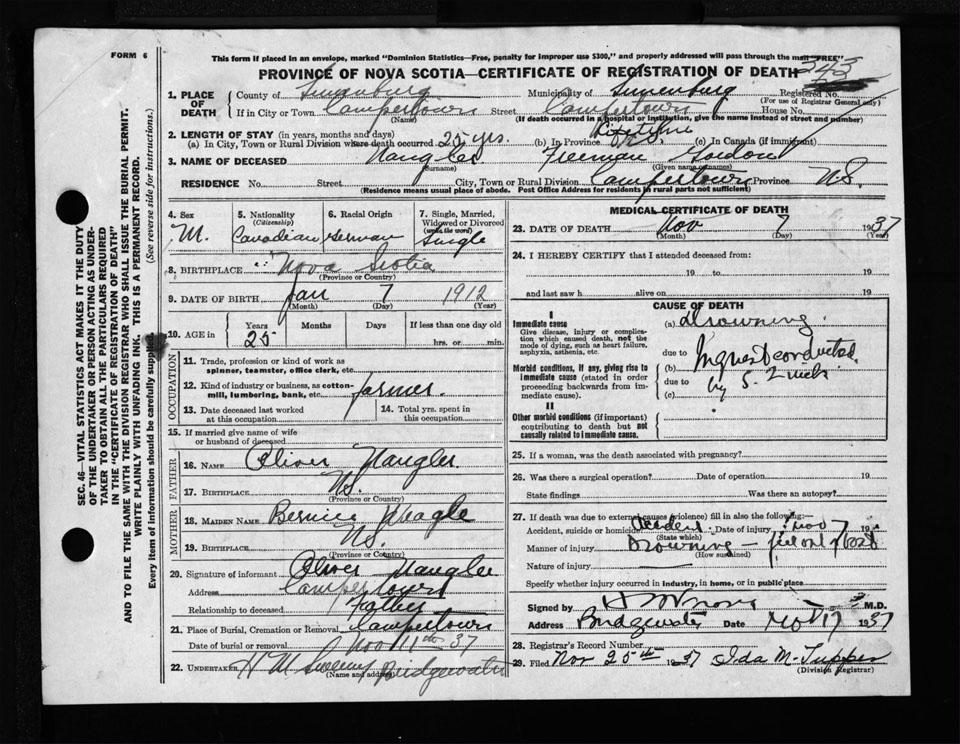 FORM 6
This form if placed in an envelope, marked "Dominion Statistics—Free, penalty for improper use $300," and properly addressed will pass through the mail "FREE"
PROVINCE OF NOVA SCOTIA—CERTIFICATE OF REGISTRATION OF DEATH
343
1. PLACE OF DEATH
County of Lunenburg Municipality of Lunenburg Registered No.
(For use of Registrar General only)
If in City or Town Campertown Street Campertown House No.
(Name) (If death occurred in a hospital or institution, give the name instead of street and number)
2. LENGTH OF STAY (in years, months and days)
(a) In City, Town or Rural Division where death occurred 25 yrs. (b) In Province Lifetime (c) In Canada (if immigrant)
3. NAME OF DECEASED Naugler Freeman Gordon
(Surname) (Given name or names)
RESIDENCE No. Street City, Town or Rural Division Campertown Province N.S.
(Residence means usual place of abode. Post Office Address for residents in rural parts not sufficient)
4. Sex M.
5. Nationality (Citizenship) Canadian
6. Racial Origin German
7. Single, Married, Widowed or Divorced (write the word) Single
8. BIRTHPLACE Nova Scotia
(Province or Country)
9. DATE OF BIRTH Jan 7 1912
(Month) (Day) (Year)
10. AGE in Years Months Days If less than one day old
25 hrs. or min.
OCCUPATION
11. Trade, profession or kind of work as spinner, teamster, office clerk, etc.
12. Kind of industry or business, as cotton-mill, lumbering, bank, etc. farmer.
13. Date deceased last worked at this occupation
14. Total yrs. spent in this occupation
15. If married give name of wife or husband of deceased
FATHER
16. NAME Oliver Naugler
17. BIRTHPLACE N.S.
(Province or Country)
MOTHER
18. MAIDEN NAME Bernice
19. BIRTHPLACE N.S.
(Province or Country)
20. Signature of informant Oliver Naugler
Address Campertown
Relationship to deceased Father
21. Place of Burial, Cremation or Removal Campertown
Date of burial or removal Nov 11th 37
22. UNDERTAKER H M Sweeny Bridgewater
(Name and address)
MEDICAL CERTIFICATE OF DEATH
23. DATE OF DEATH Nov 7 1937
(Month) (Day) (Year)
24. I HEREBY CERTIFY that I attended deceased from:
19 to 19
and last saw h alive on 19
CAUSE OF DEATH
I
Immediate cause
Give disease, injury or complication which caused death, not the mode of dying, such as heart failure, asphyxia, asthenia, etc.
(a) Drowning
due to
Morbid conditions, if any, giving rise to immediate cause (stated in order proceeding backwards from immediate cause).
(b) Inquest conducted
due to by S.
(c)
II
Other morbid conditions (if important) contributing to death but not causally related to immediate cause.
25. If a woman, was the death associated with pregnancy?
26. Was there a surgical operation? Date of operation 19
State findings Was there an autopsy?
27. If death was due to external causes (violence) fill in also the following:—
Accident, suicide or homicide Accident. Date of injury Nov 7 19
(State which)
Manner of injury Drowning — fell out of boat
(How sustained)
Nature of injury
Specify whether injury occurred in industry, in home, or in public place
Signed by M.D.
Address Bridgewater Date Nov 17 1937
28. Registrar's Record Number
29. Filed Nov 25th 1937 Ida M. Tupper
(Division Registrar)
SEC. 46—VITAL STATISTICS ACT MAKES IT THE DUTY
OF THE UNDERTAKER OR PERSON ACTING AS UNDER-
TAKER TO OBTAIN ALL THE PARTICULARS REQUIRED
IN THE "CERTIFICATE OF REGISTRATION OF DEATH"
AND TO FILE THE SAME WITH THE DIVISION REGISTRAR WHO SHALL ISSUE THE BURIAL PERMIT.
WRITE PLAINLY WITH UNFADING INK. THIS IS A PERMANENT RECORD.
Every item of information should be carefully supplied. (See reverse side for instructions.)